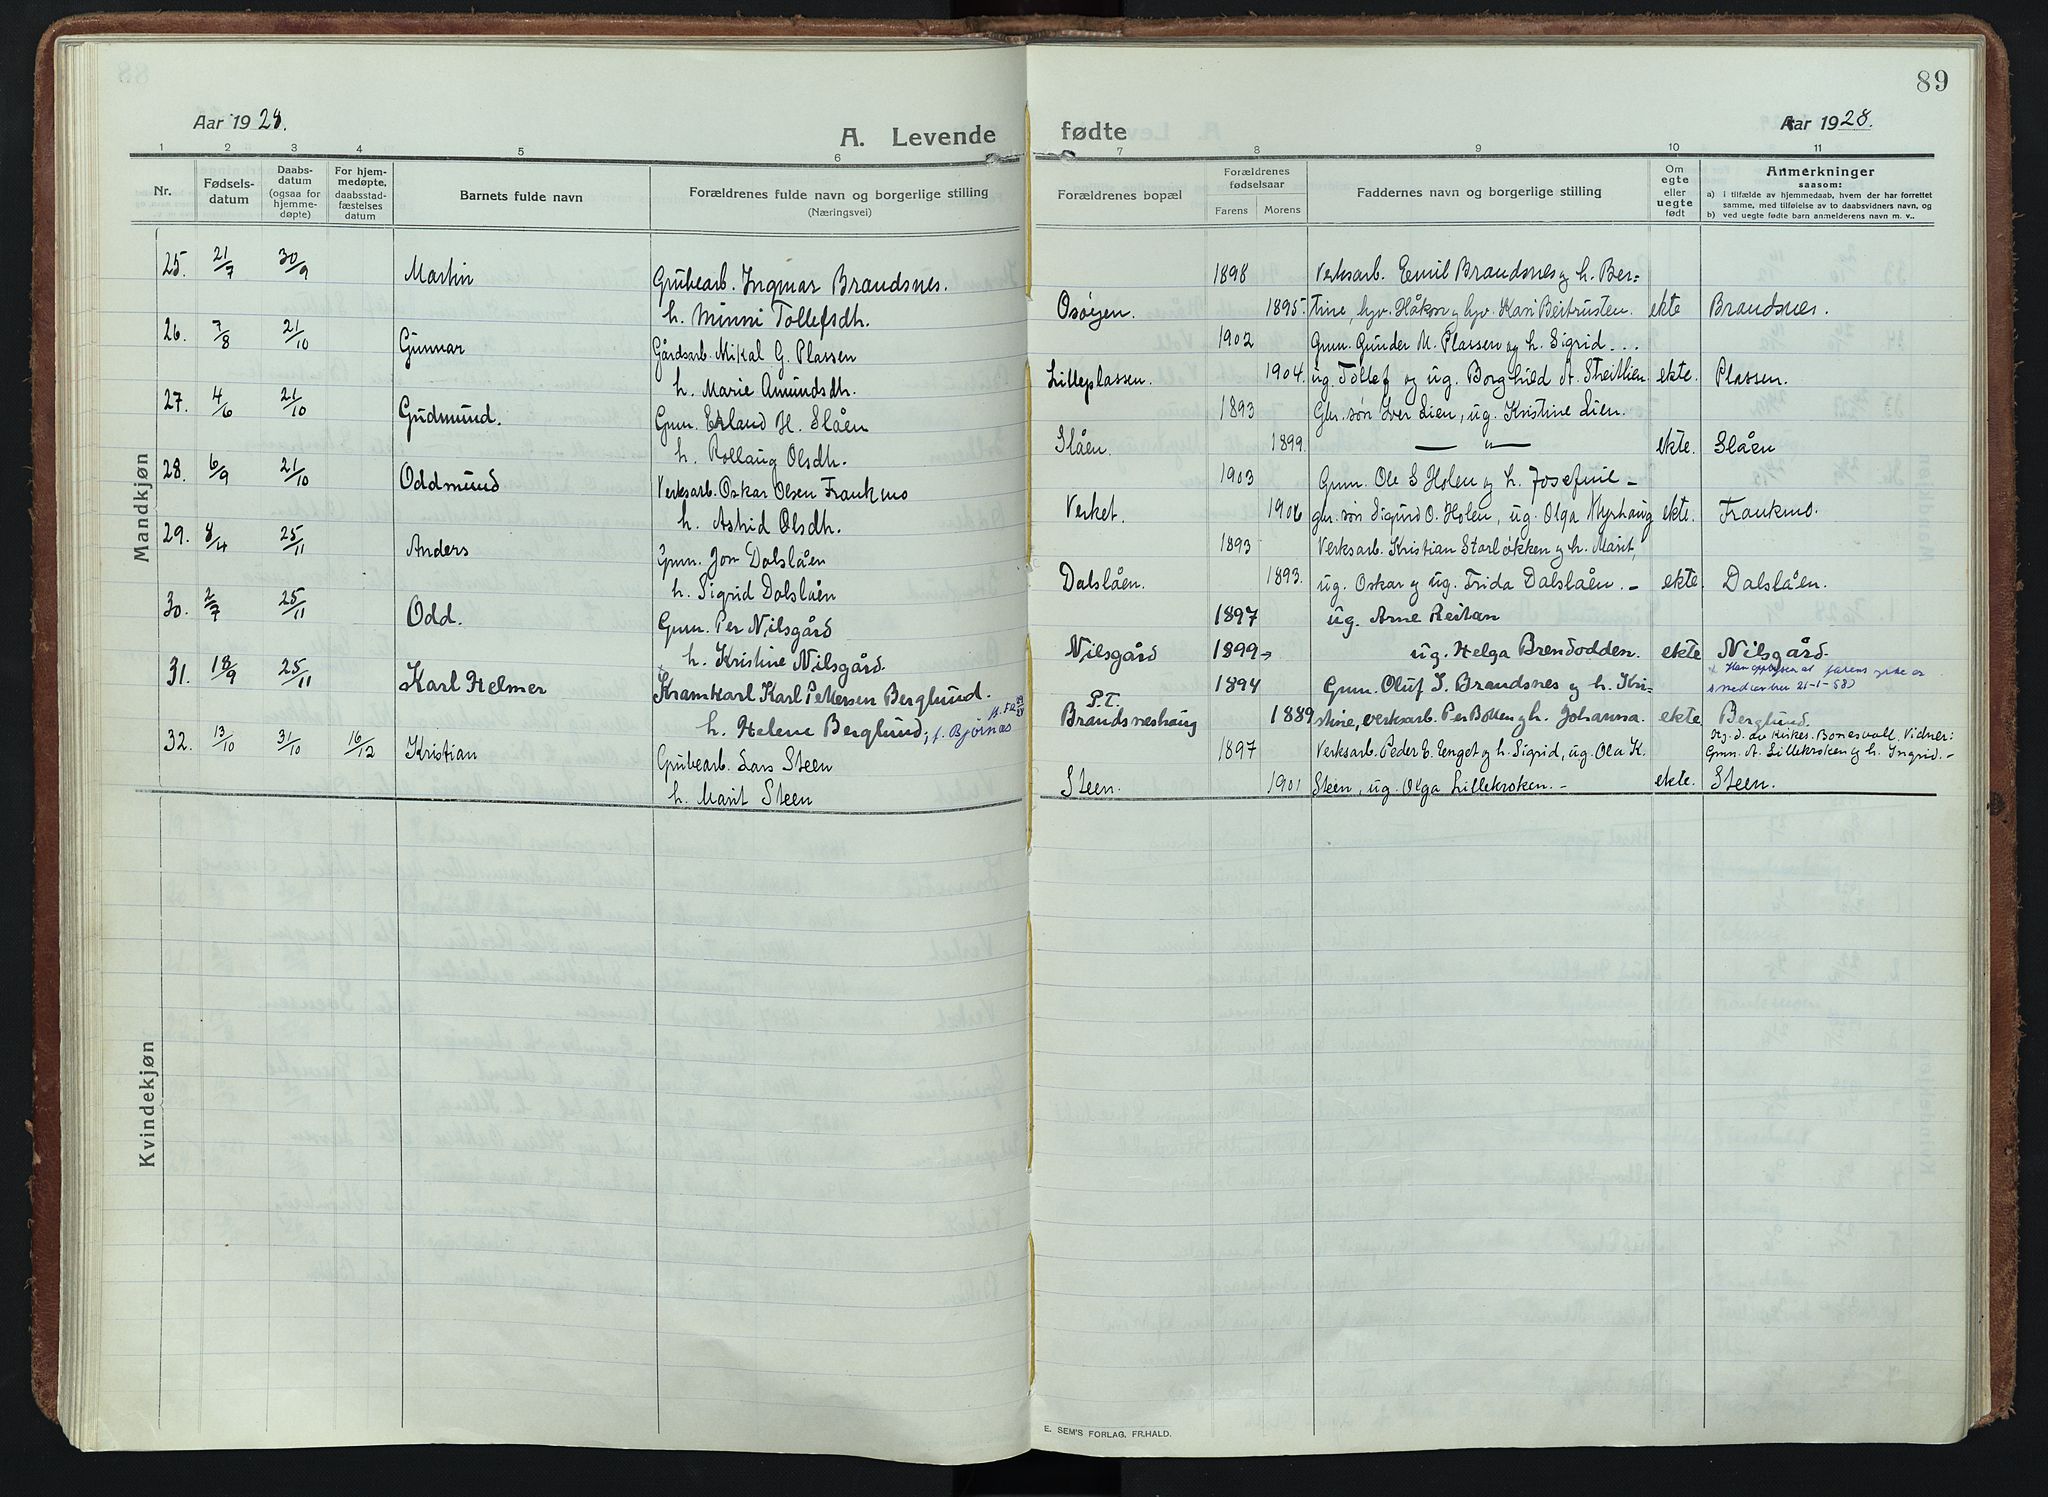 89
Aar 1928.
A. Levende fødte
Aar 1928.
1 2 3 4 5 6 7 8 9 10 11
Nr.
Fødsels-
datum
Daabs-
datum
(ogsaa for
hjemme-
døpte)
For hjem-
medøpte,
daabsstad-
fæstelses
datum
Barnets fulde navn
Forældrenes fulde navn og borgerlige stilling
(Næringsvei)
Forældrenes bopæl
Forældrenes
fødselsaar
Farens Morens
Faddernes navn og borgerlige stilling
Om
egte
eller
uegte
født
Anmerkninger
saasom:
a) i tilfælde av hjemmedaab, hvem der har forrettet
samme, med tilføielse av to daabsvidners navn, og
b) ved uegte fødte barn anmelderens navn m. v..
Mandkjøn
25. 21/7 30/9 Martin Grubearb. Ingmar Brandsnes. 1898 Verksarb. Emil Brandsnes og h. Ber-
h. Minni Tollefsdh. Osøyen. 1895. tine, hyv. Håkon og hyv. Kari Beitrusten. ekte Brandsnes.
26. 7/8 21/10 Gunnar Gårdsarb. Mikal G. Plassen 1902 Gmn. Gunder M. Plassen og h. Sigrid...
h. Marie Amundsdh. Lilleplassen. 1904. ug. Tollef og ug. Borghild A. Streitlien ekte. Plassen.
27. 4/6 21/10 Gudmund. Gmn. Erland H. Slåen 1893 Gbr. søn Iver Lien, ug. Kristine Lien.
h. Rollaug Olsdh. Slåen. 1899. — " — ekte. Slåen
28. 6/9 21/10 Oddmund Verksarb. Oskar Olsen Frankmo 1903 Gmn. Ole S Holen og h. Josefine -
h. Astrid Olsdh. Verket. 1906 gbr. søn Sigurd O. Holen, ug. Olga Myrhaug ekte. Frankmo.
29. 8/4 25/11 Anders Gmn. Jon Dalslåen 1893 Verksarb. Kristian Starløkken og h. Marit,
h. Sigrid Dalslåen Dalslåen. 1893. ug. Oskar og ug. Frida Dalslåen. - ekte. Dalslåen.
30. 2/7 25/11 Odd. Gmn. Per Nilsgård 1897 ug. Arne Reitan
h. Kristine Nilsgård. Nilsgård 1899 ug. Helga Brendodden. ekte Nilsgård.
31. 18/9 25/11 Karl Helmer Kramkarl Karl Pettersen Berglund. 1894 Gmn. Oluf I. Brandsnes og h. Kri-
h. Helene Berglund, f. Bjørnås P.T. Brandsneshaug 1889 stine, verksarb. Per Botten og h. Johanna. ekte Berglund.
32. 13/10 31/10 16/12 Kristian Grubearb. Lars Steen 1897 Verksarb. Peder E. Enget og h. Sigrid, ug. Ola K. Gmn. A. Lillekroken og h. Ingrid. -
h. Marit Steen Steen. 1901 Steen, ug. Olga Lillekroken. - ekte. Steen.
Kvindekjøn
E. SEM'S FORLAG, FR.HALD.